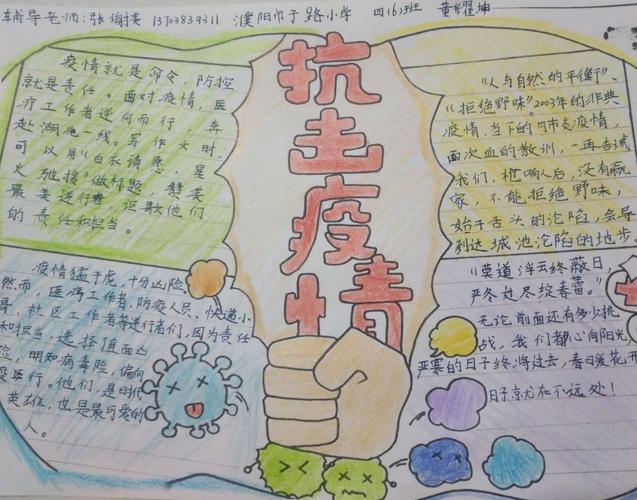 辅导老师：张谢 13703839311 濮阳市子路小学 四(6)班 黄耀坤
抗击疫情
疫情就是命令，防控
就是责任。面对疫情，医
疗工作者逆向而行，奔
赴湖北一线。写作文时，
可以用"白衣请愿，星
火驰援"做标题，赞美
最美逆行者，讴歌他们
的责任和担当。
"人与自然的平衡"、
"拒绝野味"。2003年的非典
疫情，当下的肺炎疫情，
两次血的教训，一再告诫
我们，枪响后，没有赢
家，不能拒绝野味，
始于舌头的沦陷，会导
到达城池沦陷的地步。
疫情猛于虎，十分凶险
然而，医务工作者、防疫人员、快递小
哥、社区工作者等逆行者们，因为责任
和担当，选择直面凶
险，明知病毒险，偏向
疫区行。他们，是时代
英雄，也是最可爱的
人。
"莫道浮云终蔽日，
严冬过尽绽春蕾。"
无论前面还有多少挑
战，我们都心向阳光
严寒的日子终将过去，春日暖花开
日子就在不远处！